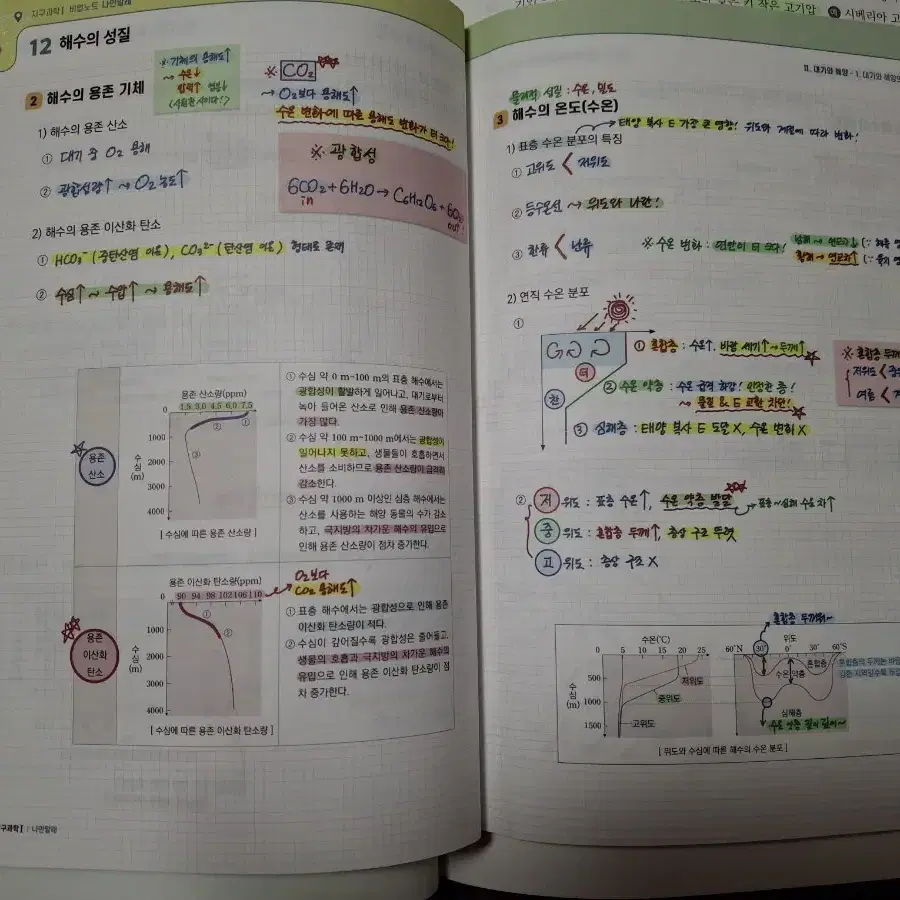 지구과학Ⅰ 비법노트 나만말래
12 해수의 성질
※ 기체의 용해도↑
→ 수온↓
압력↑ 염분↓
※ CO₂
→ O₂보다 용해도↑
수온 변화에 따른 용해도 변화가 더 크다!
2 해수의 용존 기체
1) 해수의 용존 산소
① 대기 중 O₂ 용해
② 광합성량↑ → O₂ 농도↑
※ 광합성
6CO₂ + 6H₂O → C₆H₁₂O₆ + 6O₂
in out!
2) 해수의 용존 이산화 탄소
① HCO₃⁻ (중탄산염 이온), CO₃²⁻ (탄산염 이온) 형태로 존재
② 수심↑ ~ 수압↑ → 용해도↑
용존
산소
용존 산소량(ppm)
1.5 3.0 4.5 6.0 7.5
0
1000
2000
3000
4000
수심
(m)
① ② ③
[ 수심에 따른 용존 산소량 ]
① 수심 약 0 m~100 m의 표층 해수에서는
광합성이 활발하게 일어나고, 대기로부터
녹아 들어온 산소로 인해 용존 산소량이
가장 많다.
② 수심 약 100 m~1000 m에서는 광합성이
일어나지 못하고, 생물들이 호흡하면서
산소를 소비하므로 용존 산소량이 급격히
감소한다.
③ 수심 약 1000 m 이상인 심층 해수에서는
산소를 사용하는 해양 동물의 수가 감소
하고, 극지방의 차가운 해수의 유입으로
인해 용존 산소량이 점차 증가한다.
용존
이산화
탄소
용존 이산화 탄소량(ppm)
90 94 98 102 106 110
0
1000
2000
3000
4000
수심
(m)
① ②
[ 수심에 따른 용존 이산화 탄소량 ]
O₂보다
CO₂ 용해도↑
① 표층 해수에서는 광합성으로 인해 용존
이산화 탄소량이 적다.
② 수심이 깊어질수록 광합성은 줄어들고,
생물의 호흡과 극지방의 차가운 해수의
유입으로 인해 용존 이산화 탄소량이 점
차 증가한다.
지구과학Ⅰ | 나만말래
시베리아 고
Ⅱ. 대기와 해양 - 1. 대기와 해양의
물리적 성질 : 수온, 밀도
3 해수의 온도(수온)
→ 태양 복사 E 가장 큰 영향! 위도와 계절에 따라 변화!
1) 표층 수온 분포의 특징
① 고위도 < 저위도
② 등수온선 → 위도와 나란!
③ 한류 < 난류
※ 수온 변화 : 연안이 더 크다!
2) 연직 수온 분포
①
더
찬
① 혼합층 : 수온↑, 바람 세기↑→두께↑
② 수온 약층 : 수온 급격 하강! 안정한 층!
→ 물질 & E 교환 차단!
③ 심해층 : 태양 복사 E 도달 X, 수온 변화 X
※ 혼합층 두께
저위도 <
여름 <
② 저위도 : 표층 수온↑, 수온 약층 발달 → 표층~심해 수온 차↑
중위도 : 혼합층 두께↑, 층상 구조 뚜렷
고위도 : 층상 구조 X
수온(℃)
0 5 10 15 20 25
500
1000
1500
수심
(m)
저위도
중위도
고위도
혼합층 두꺼워~
위도
60°N 30° 0° 30° 60°S
혼합층
수온 약층
심해층
[ 위도와 수심에 따른 해수의 수온 분포 ]